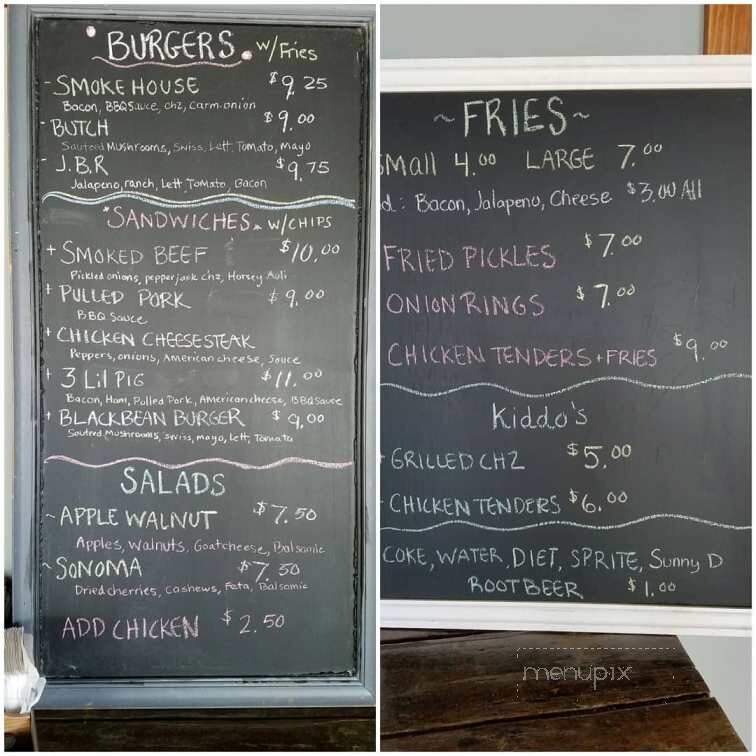 BURGERS w/Fries
- SMOKEHOUSE $9.25
Bacon, BBQ Sauce, chz, Carm.onion
- BUTCH $9.00
Sauteed Mushrooms, Swiss, Lett, Tomato, Mayo
- J.B.R $9.75
Jalapeno, ranch, Lett, Tomato, Bacon
SANDWICHES W/CHIPS
+ SMOKED BEEF $10.00
Pickled onions, pepperjack chz, Horsey Aoli
+ PULLED PORK $9.00
BBQ Sauce
+ CHICKEN CHEESESTEAK
Peppers, onions, American cheese, Sauce
+ 3 LIL PIG $11.00
Bacon, Ham, Pulled Pork, American cheese, BBQ Sauce
+ BLACKBEAN BURGER $9.00
Sauteed Mushrooms, swiss, mayo, Lett, Tomato
SALADS
~ APPLE WALNUT $7.50
Apples, Walnuts, Goat cheese, Balsamic
~ SONOMA $7.50
Dried cherries, Cashews, Feta, Balsamic
ADD CHICKEN $2.50
~ FRIES ~
Small 4.00 LARGE 7.00
d: Bacon, Jalapeno, Cheese $3.00 All
FRIED PICKLES $7.00
ONION RINGS $7.00
CHICKEN TENDERS + FRIES $9.00
Kiddo's
+ GRILLED CHZ $5.00
- CHICKEN TENDERS $6.00
COKE, WATER, DIET, SPRITE, Sunny D
ROOTBEER $1.00
menupix